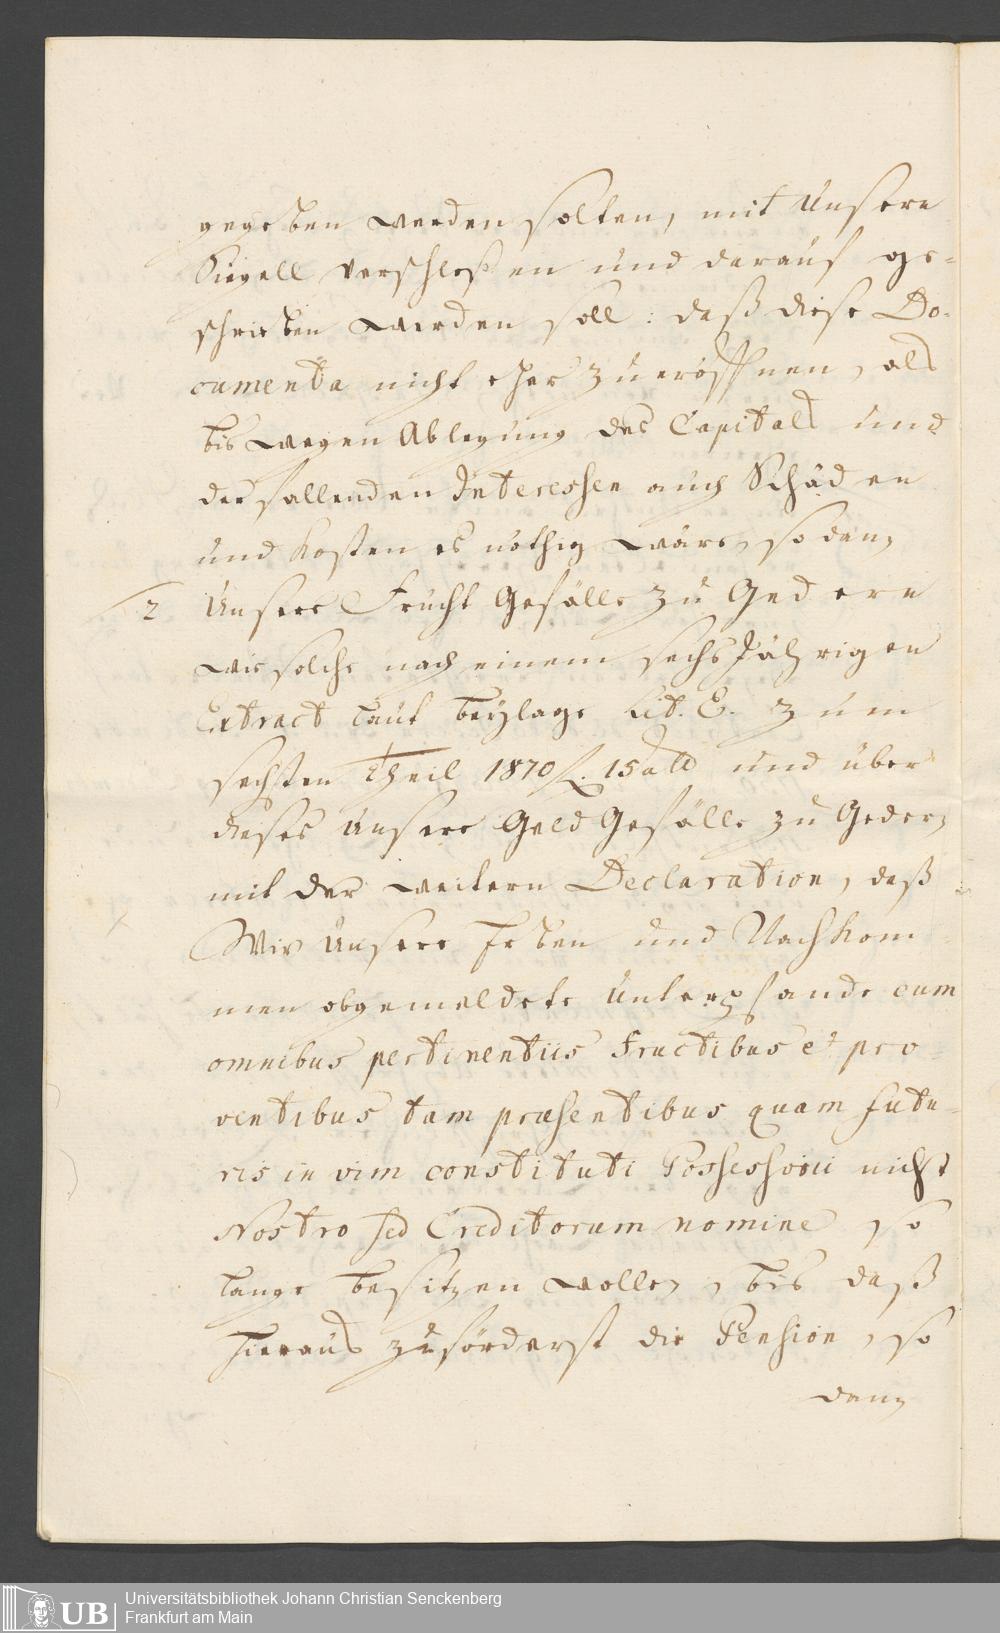 gegeben werden solten, mit Unserm
Siegell verschloßen und darauf ge-
schrieben werden soll: daß diese Do-
cumenta nicht eher zu eröffnen, als
bis wegen Ablegung des Capitals und
der fallenden Interessen auch Schäden
und Kosten es nöthig wäre, sodann
2 Unsere Frucht Gefälle zu Gedern
wie solche nach einem sechs Jährigen
Extract laut beÿlage Lit. E. zum
sechsten Theil 1870 f. 15 alb und über
dieses Unsere Geld Gefälle zu Gedern
mit der weitern Declaration, daß
Wir Unsere Erben und Nachkom-
men obgemeldete Unterpfande cum
omnibus pertinentiis fructibus et pro-
ventibus tam præsentibus quam futu-
ris in vim constituti Possessorii nicht
Nostro sed Creditorum nomine, so
lange besitzen wollen, bis daß
hieraus zuförderst die Pension, so
dann
Universitätsbibliothek Johann Christian Senckenberg
Frankfurt am Main
UB